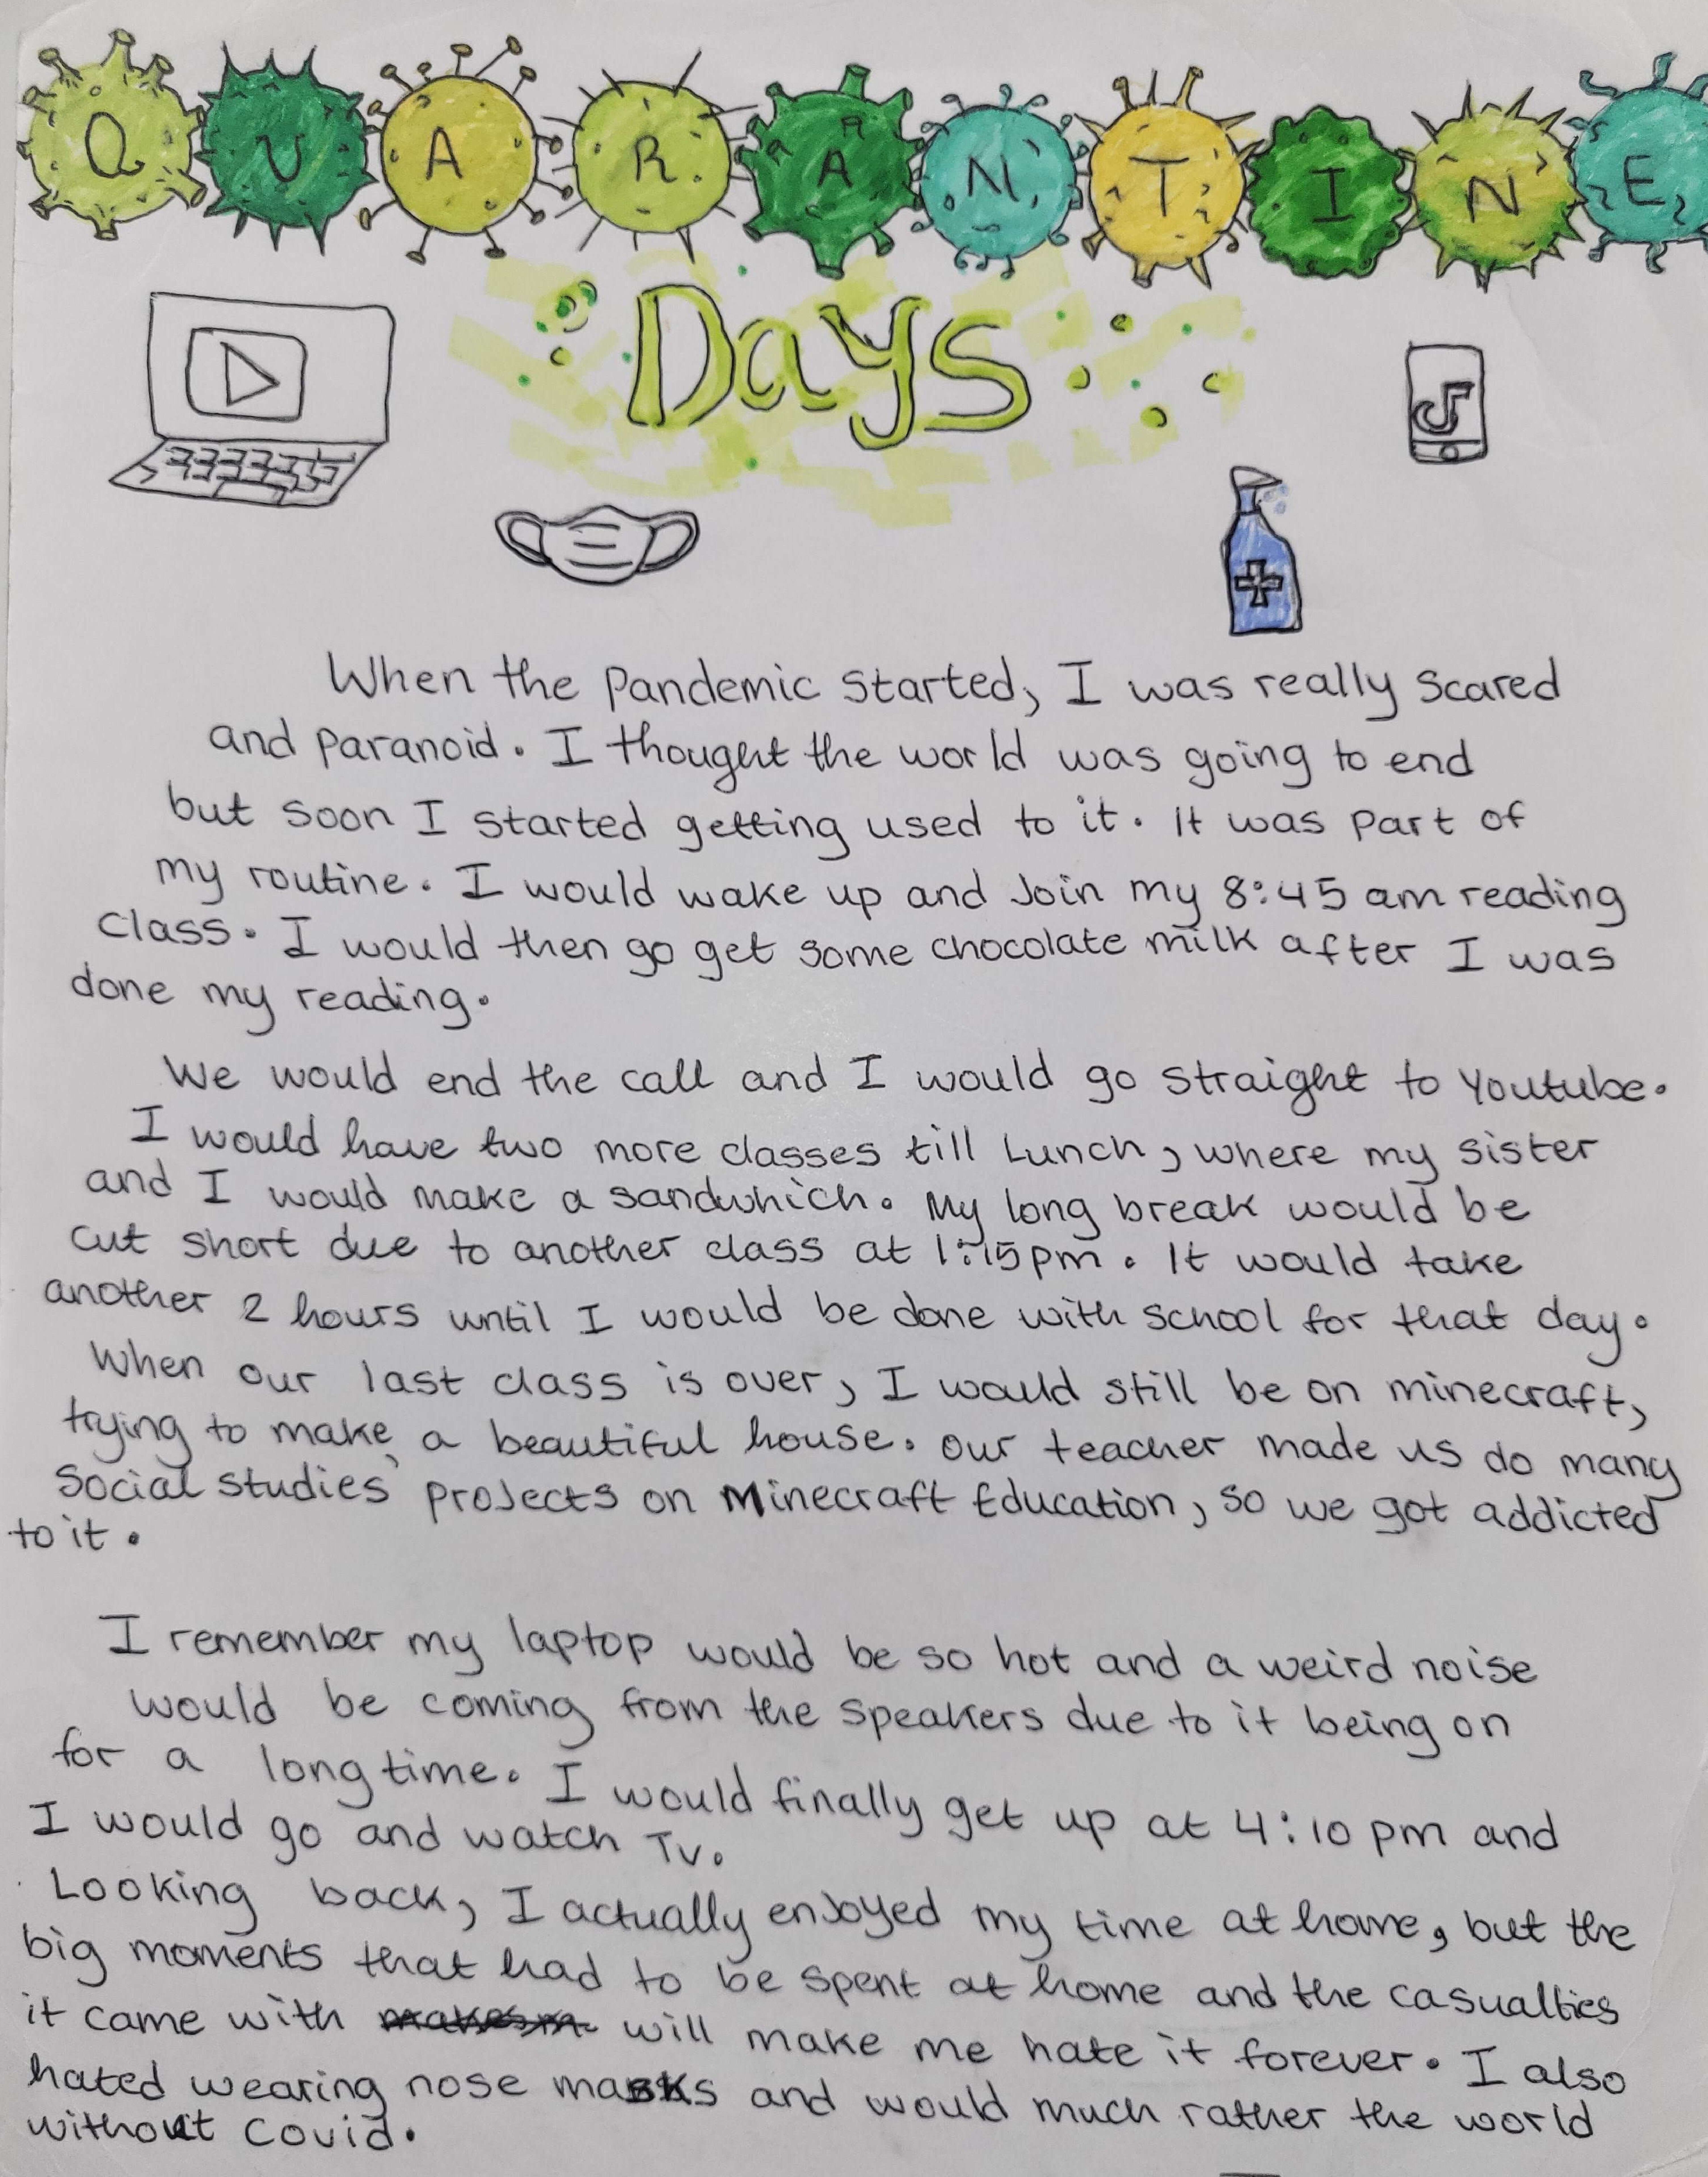 QUARANTINE
Days
When the pandemic started, I was really scared
and paranoid. I thought the world was going to end
but soon I started getting used to it. It was part of
my routine. I would wake up and Join my 8:45 am reading
class. I would then go get some chocolate milk after I was
done my reading.
We would end the call and I would go straight to Youtube.
I would have two more classes till Lunch, where my sister
and I would make a sandwhich. My long break would be
cut short due to another class at 1:15pm. It would take
another 2 hours until I would be done with school for that day.
When our last class is over, I would still be on minecraft,
trying to make a beautiful house. Our teacher made us do many
Social studies projects on Minecraft Education, so we got addicted
to it.
I remember my laptop would be so hot and a weird noise
would be coming from the speakers due to it being on
for a long time. I would finally get up at 4:10 pm and
I would go and watch Tv.
Looking back, I actually enjoyed my time at home, but the
big moments that had to be spent at home and the casualties
it came with will make me hate it forever. I also
hated wearing nose masks and would much rather the world
without Covid.